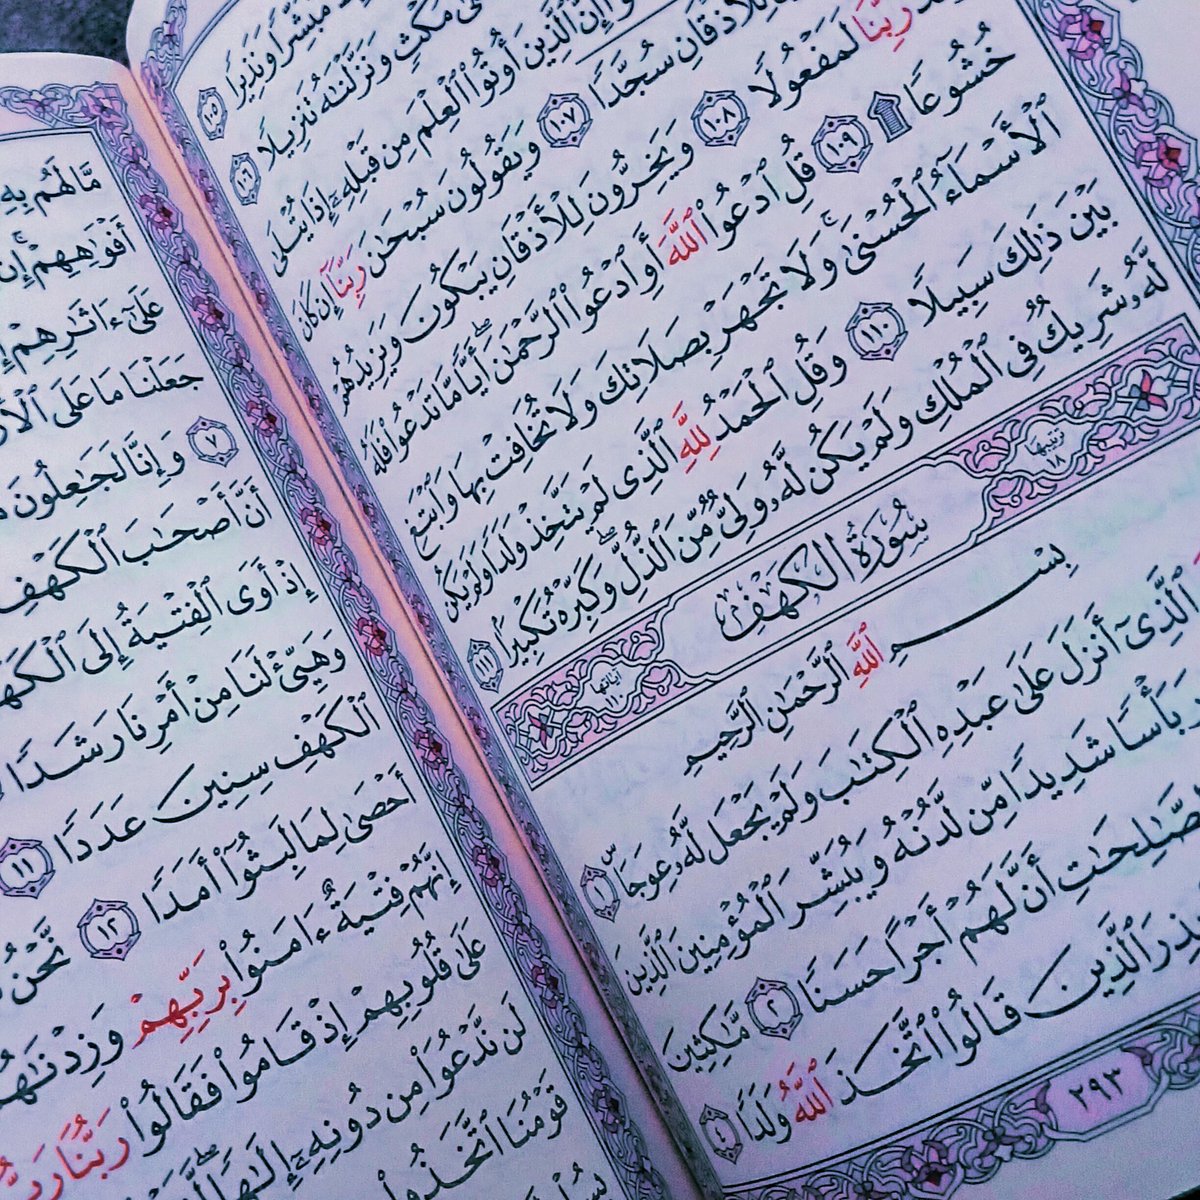 مُبَشِّرًا وَنَذِيرًا ١٠٥
مُكْثٍ وَنَزَّلْنَٰهُ تَنزِيلًا ١٠٦
إِنَّ ٱلَّذِينَ أُوتُوا۟ ٱلْعِلْمَ مِن قَبْلِهِۦٓ إِذَا يُتْلَىٰ
لِلْأَذْقَانِ سُجَّدًا ١٠٧ وَيَقُولُونَ سُبْحَٰنَ رَبِّنَآ إِن كَانَ
رَبِّنَا لَمَفْعُولًا ١٠٨ وَيَخِرُّونَ لِلْأَذْقَانِ يَبْكُونَ وَيَزِيدُهُمْ
خُشُوعًا ۩ ١٠٩ قُلِ ٱدْعُوا۟ ٱللَّهَ أَوِ ٱدْعُوا۟ ٱلرَّحْمَٰنَ ۖ أَيًّا مَّا تَدْعُوا۟ فَلَهُ
ٱلْأَسْمَآءُ ٱلْحُسْنَىٰ ۚ وَلَا تَجْهَرْ بِصَلَاتِكَ وَلَا تُخَافِتْ بِهَا وَٱبْتَغِ
بَيْنَ ذَٰلِكَ سَبِيلًا ١١٠ وَقُلِ ٱلْحَمْدُ لِلَّهِ ٱلَّذِى لَمْ يَتَّخِذْ وَلَدًا وَلَمْ يَكُن
لَّهُۥ شَرِيكٌ فِى ٱلْمُلْكِ وَلَمْ يَكُن لَّهُۥ وَلِىٌّ مِّنَ ٱلذُّلِّ ۖ وَكَبِّرْهُ تَكْبِيرًۢا ١١١
ترتيبها ١٨ سُورَةُ الكَهْفِ آياتها ١١٠
بِسْمِ ٱللَّهِ ٱلرَّحْمَٰنِ ٱلرَّحِيمِ
ٱلَّذِىٓ أَنزَلَ عَلَىٰ عَبْدِهِ ٱلْكِتَٰبَ وَلَمْ يَجْعَل لَّهُۥ عِوَجَاۜ ١
بَأْسًا شَدِيدًا مِّن لَّدُنْهُ وَيُبَشِّرَ ٱلْمُؤْمِنِينَ ٱلَّذِينَ
ٱلصَّٰلِحَٰتِ أَنَّ لَهُمْ أَجْرًا حَسَنًا ٢ مَّٰكِثِينَ
ٱلَّذِينَ قَالُوا۟ ٱتَّخَذَ ٱللَّهُ وَلَدًا ٤
٢٩٣
مَّا لَهُم بِهِۦ
أَفْوَٰهِهِمْ ۚ إِن
عَلَىٰٓ ءَاثَٰرِهِمْ
جَعَلْنَا مَا عَلَى
٧ وَإِنَّا لَجَٰعِلُونَ
أَنَّ أَصْحَٰبَ ٱلْكَهْفِ
إِذْ أَوَى ٱلْفِتْيَةُ إِلَى
وَهَيِّئْ لَنَا مِنْ أَمْرِنَا رَشَدًا
ٱلْكَهْفِ سِنِينَ عَدَدًا ١١
أَحْصَىٰ لِمَا لَبِثُوٓا۟ أَمَدًا ١٢ نَّحْنُ
إِنَّهُمْ فِتْيَةٌ ءَامَنُوا۟ بِرَبِّهِمْ وَزِدْنَٰهُمْ
عَلَىٰ قُلُوبِهِمْ إِذْ قَامُوا۟ فَقَالُوا۟ رَبُّنَا رَبُّ
لَن نَّدْعُوَا۟ مِن دُونِهِۦٓ إِلَٰهًا ۖ
قَوْمُنَا ٱتَّخَذُوا۟